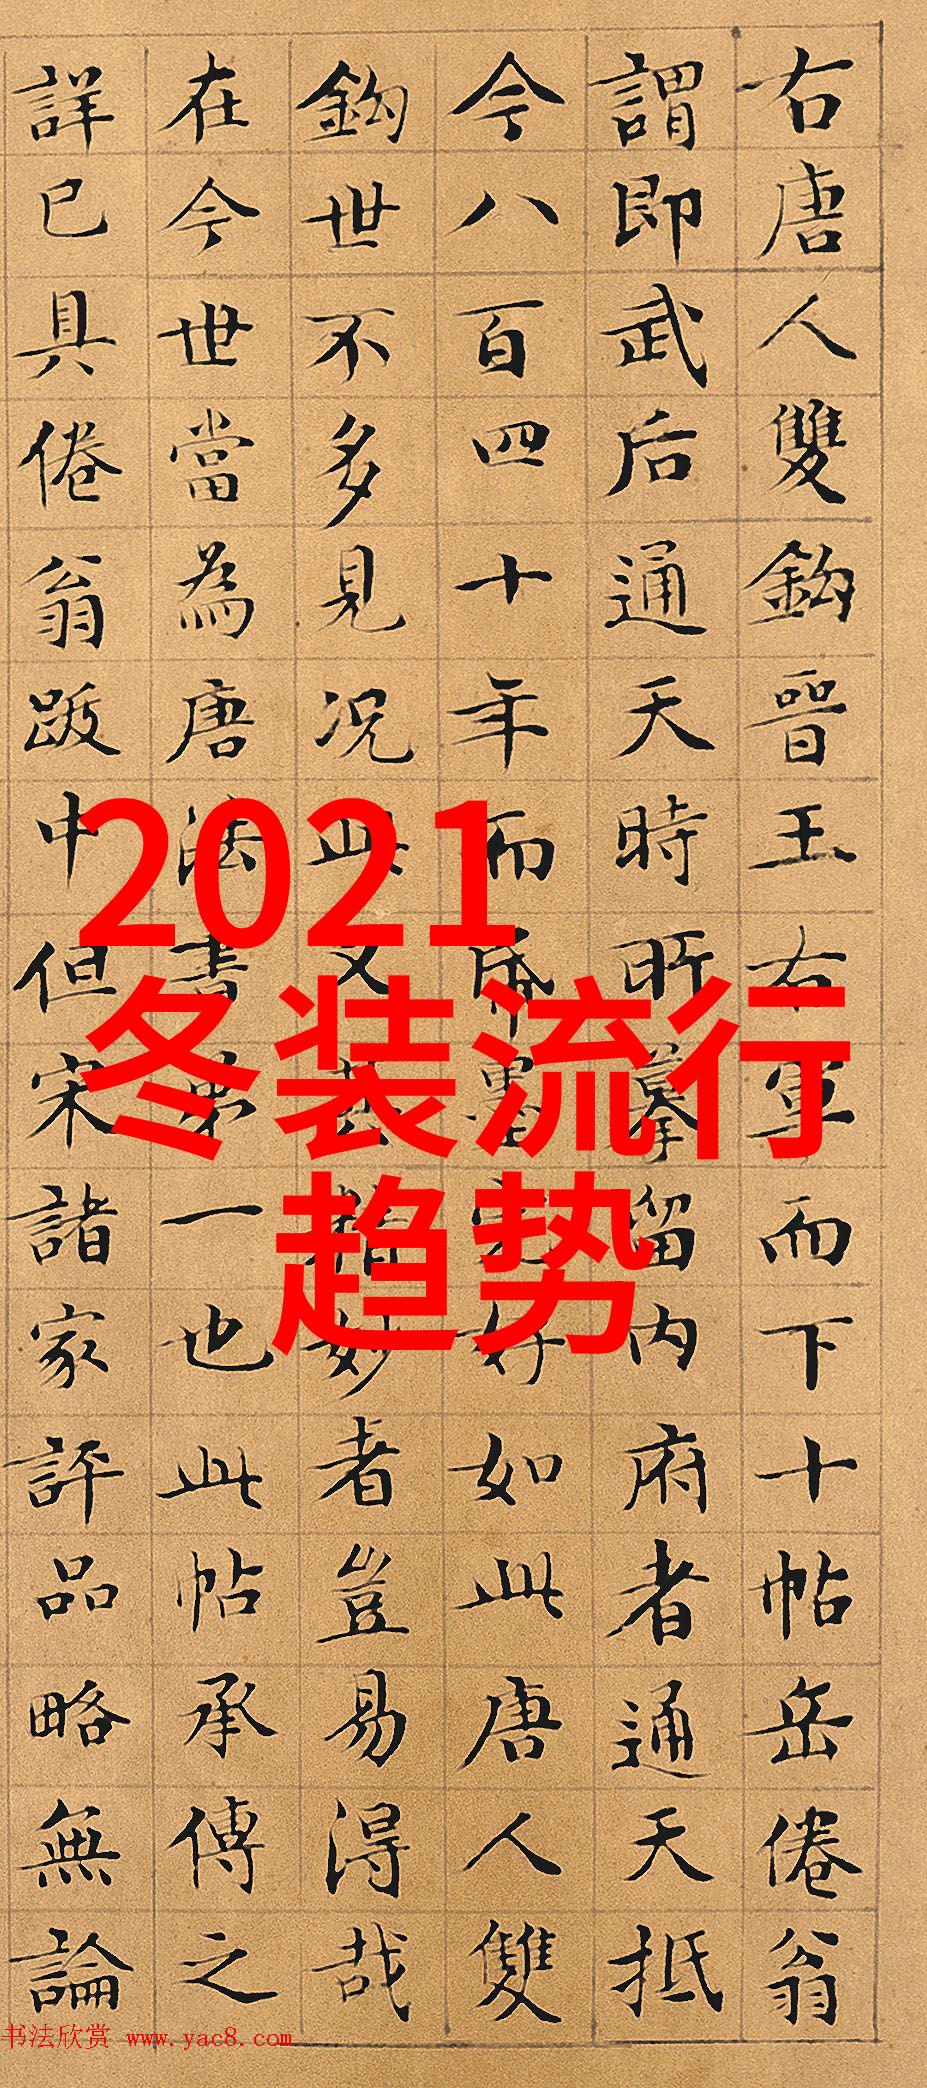 右唐人雙鈎晉王右軍而下十帖岳倦翁
謂即武后通天時所摹留内府者通天抵
今八百四十年而帋墨完好如此唐人雙
鈎世不多見况此又其精妙者豈易得哉
在今世當為唐法書第一也此帖承傳之
詳已具倦翁跋中但宋諸家評品略無論
2021
冬装流行
趋势
书法欣赏 www.yac8.com